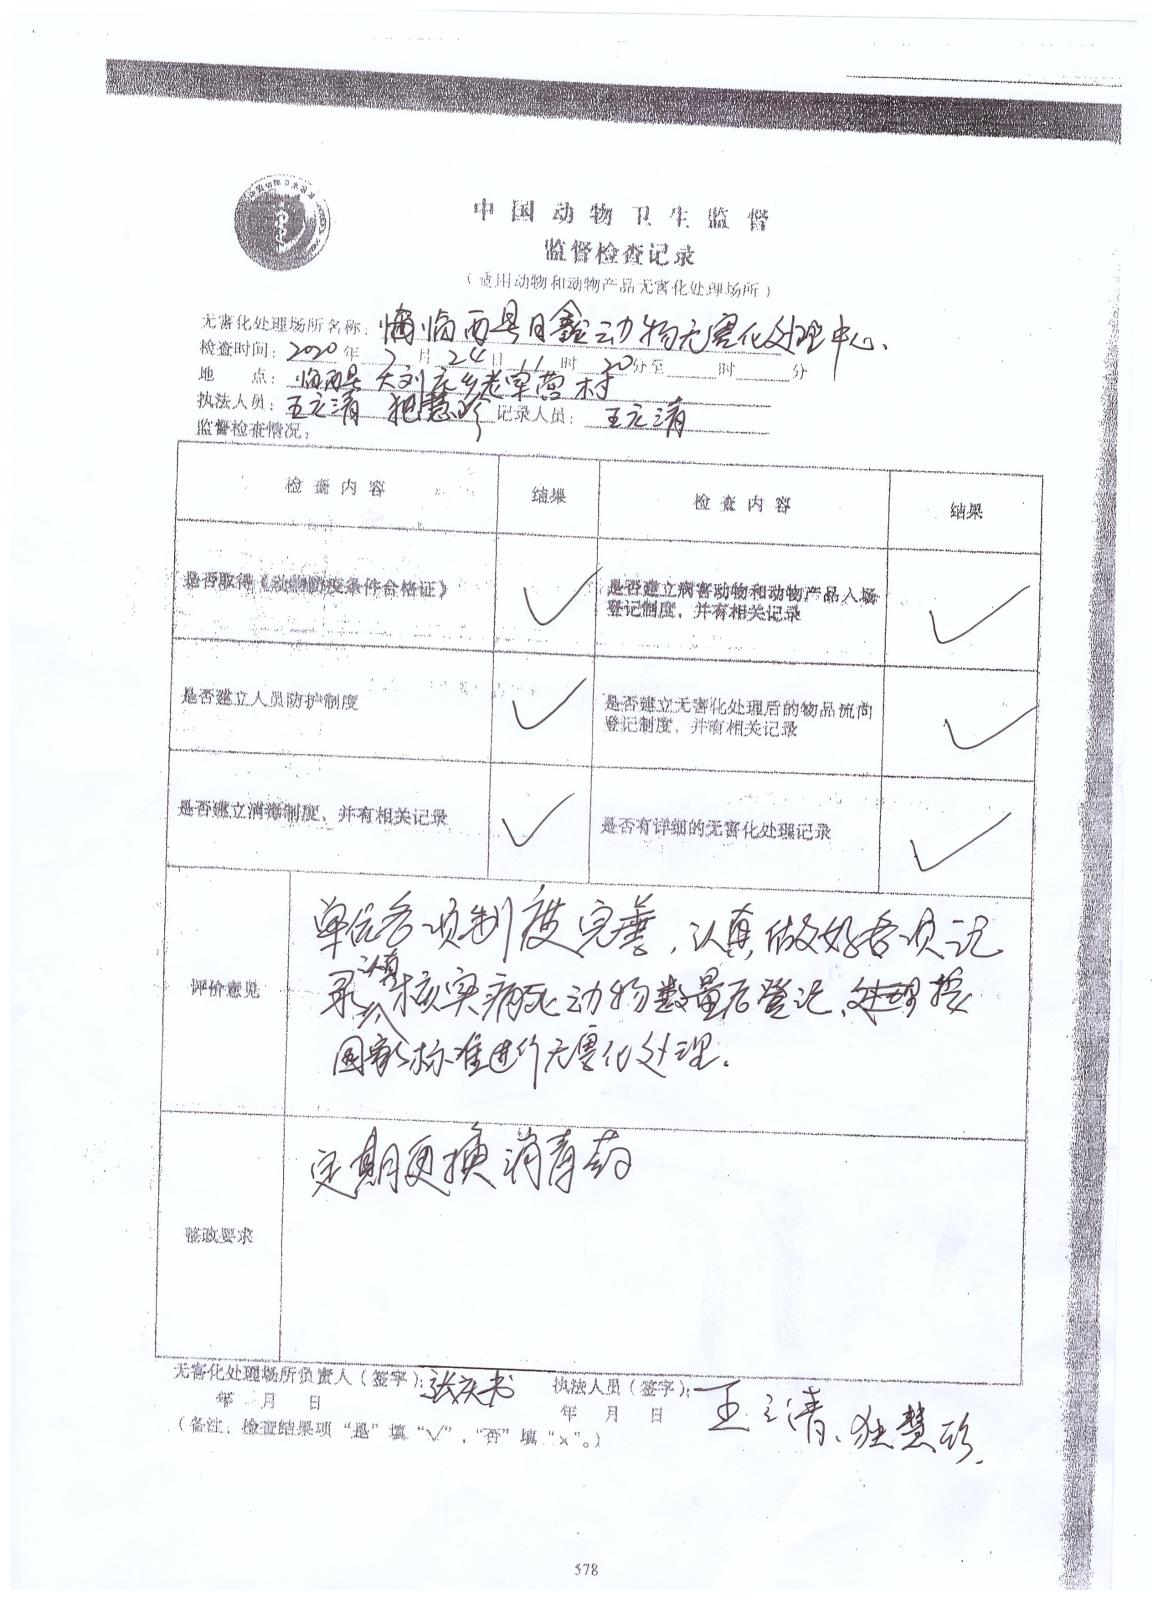 中国动物卫生监督
监督检查记录
（适用动物和动物产品无害化处理场所）
无害化处理场所名称：临西县日鑫动物无害化处理中心.
检查时间：2020年2月24日11时20分至____时____分
地 点：临西县大刘庄乡老军营村
执法人员：王立清 慧珍 记录人员：王立清
监督检查情况：
检查内容 结果 检查内容 结果
是否取得《动物防疫条件合格证》 ✓ 是否建立病害动物和动物产品入场登记制度，并有相关记录 ✓
是否建立人员防护制度 ✓ 是否建立无害化处理后的物品流向登记制度，并有相关记录 ✓
是否建立消毒制度，并有相关记录 ✓ 是否有详细的无害化处理记录 ✓
评价意见
单位各项制度完善，认真做好各项记
录认真核实病死动物数量后登记、处理按
国家标准进行无害化处理.
整改要求
定期更换消毒药
无害化处理场所负责人（签字）：张庆书 执法人员（签字）：王立清、慧珍.
年 月 日 年 月 日
（备注：检查结果项“是”填“√”，“否”填“×”。）
578